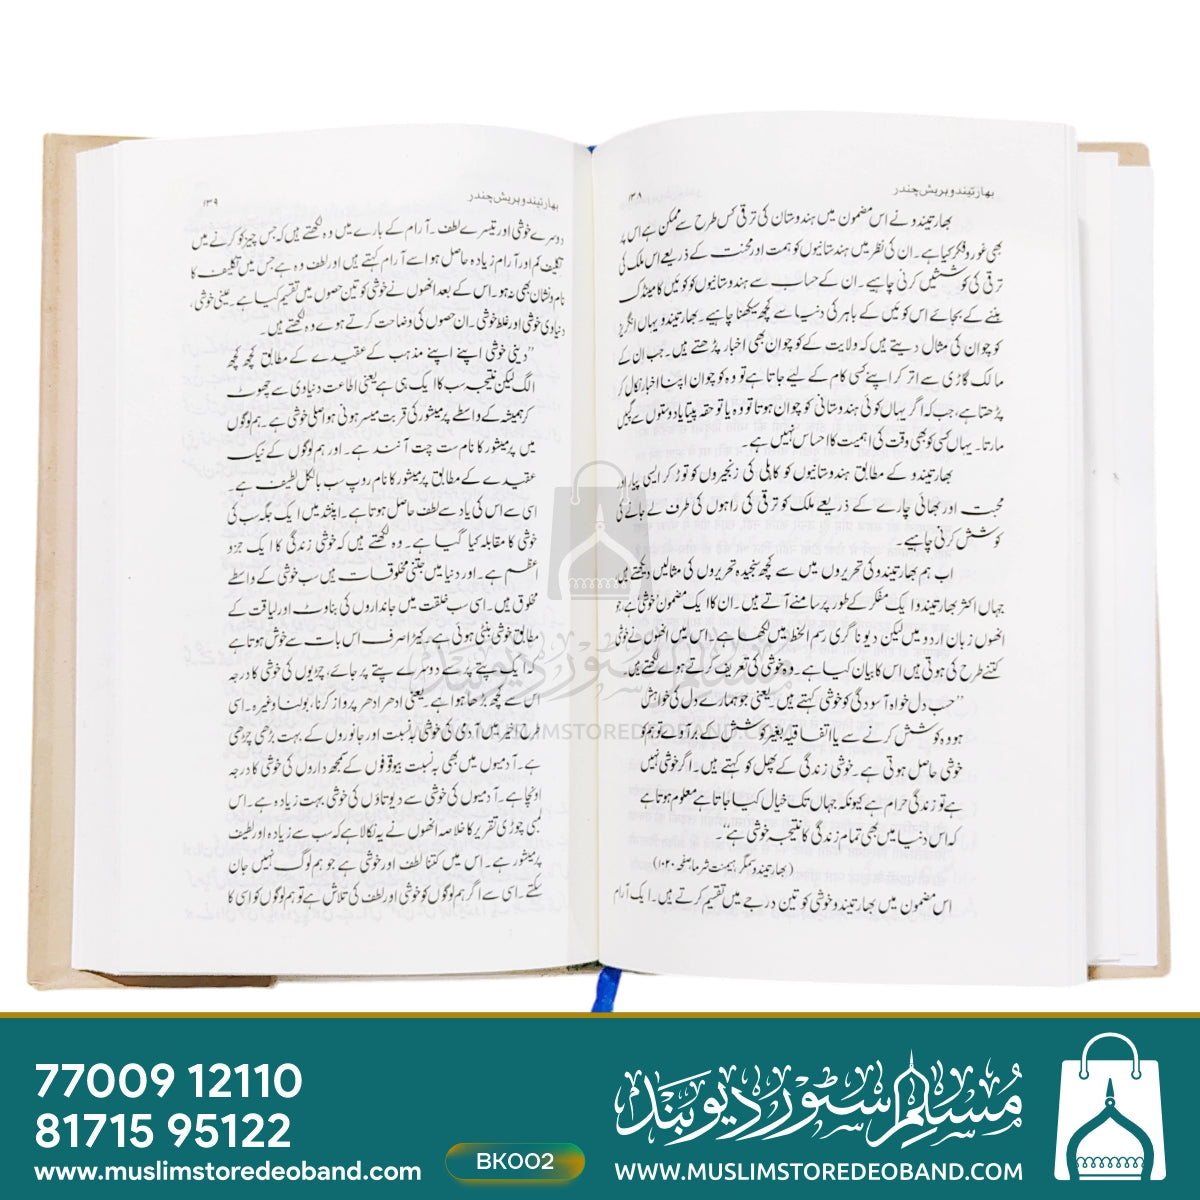 بھارتیندو ہریش چندر
۱۳۸
بھارتیندو نے اس مضمون میں ہندوستان کی ترقی کس طرح سے ممکن ہے اس پر
بھی غور و فکر کیا ہے۔ ان کی نظر میں ہندوستانیوں کو ہمت اور محنت کے ذریعے اس ملک کی
ترقی کی کوششیں کرنی چاہیے۔ ان کے حساب سے ہندوستانیوں کو کوئیں کا مینڈک
بننے کے بجائے اس کوئیں کے باہر کی دنیا سے کچھ سیکھنا چاہیے۔ بھارتیندو یہاں انگریز
کوچوان کی مثال دیتے ہیں کہ ولایت کے کوچوان بھی اخبار پڑھتے ہیں۔ جب ان کے
مالک گاڑی سے اتر کر اپنے کسی کام کے لیے جاتا ہے تو وہ کوچوان اپنا اخبار نکال کر
پڑھتا ہے، جب کہ اگر یہاں کوئی ہندوستانی کوچوان ہوتا تو وہ یا تو حقہ پیتا یا دوستوں سے گپیں
مارتا۔ یہاں کسی کو بھی وقت کی اہمیت کا احساس نہیں ہے۔
بھارتیندو کے مطابق ہندوستانیوں کو کاہلی کی زنجیروں کو توڑ کر ایسی پیار اور
محبت اور بھائی چارے کے ذریعے ملک کو ترقی کی راہوں کی طرف لے جانے کی
کوشش کرنی چاہیے۔
اب ہم بھارتیندو کی تحریروں میں سے کچھ سنجیدہ تحریروں کی مثالیں دیکھتے ہیں
جہاں اکثر بھارتیندو ایک مفکر کے طور پر سامنے آتے ہیں۔ ان کا ایک مضمون خوشی ہے جو
انھوں زبان اردو میں لیکن دیوناگری رسم الخط میں لکھا ہے۔ اس میں انھوں نے خوشی
کتنے طرح کی ہوتی ہیں اس کا بیان کیا ہے۔ وہ خوشی کی تعریف کرتے ہوے لکھتے ہیں۔
”حسب دل خواہ آسودگی کو خوشی کہتے ہیں۔ یعنی جو ہمارے دل کی خواہش
ہو وہ کوشش کرنے سے یا اتفاقیہ بغیر کوشش کے بر آوے تو ہم کو
خوشی حاصل ہوتی ہے۔ خوشی زندگی کے پھل کو کہتے ہیں۔ اگر خوشی نہیں
ہے تو زندگی حرام ہے کیونکہ جہاں تک خیال کیا جاتا ہے معلوم ہوتا ہے
کہ اس دنیا میں بھی تمام زندگی کا نتیجہ خوشی ہے“۔
(بھارتیندو سمگر، ہیمنت شرما، صفحہ ۱۰۲۰)
اس مضمون میں بھارتیندو خوشی کو تین درجے میں تقسیم کرتے ہیں۔ ایک آرام
بھارتیندو ہریش چندر
۱۳۹
دوسرے خوشی اور تیسرے لطف۔ آرام کے بارے میں وہ لکھتے ہیں کہ جس چیز کو کرنے میں
تکلیف کم اور آرام زیادہ حاصل ہو اسے آرام کہتے ہیں اور لطف وہ ہے جس میں تکلیف کا
نام و نشان بھی نہ ہو۔ اس کے بعد انھوں نے خوشی کو تین حصوں میں تقسیم کیا ہے۔ یعنی خوشی،
دنیاوی خوشی اور غلط خوشی۔ ان حصوں کی وضاحت کرتے ہوے وہ لکھتے ہیں۔
”دینی خوشی اپنے اپنے مذہب کے عقیدے کے مطابق کچھ کچھ
الگ لیکن نتیجہ سب کا ایک ہی ہے یعنی اطاعت دنیاوی سے چھوٹ
کر ہمیشہ کے واسطے پرمیشور کی قربت میسر ہونی ہو اصلی خوشی ہے۔ ہم لوگوں
میں پرمیشور کا نام ست چت آنند ہے۔ اور ہم لوگوں کے نیک
عقیدے کے مطابق پرمیشور کا نام روپ سب بالکل لطیف ہے۔
اسی سے اس کی یاد سے لطف حاصل ہوتا ہے۔ اپنشد میں ایک جگہ سب کی
خوشی کا مقابلہ کیا گیا ہے۔ وہ لکھتے ہیں کہ خوشی زندگی کا ایک جزو
اعظم ہے۔ اور دنیا میں جتنی مخلوقات ہیں سب خوشی کے واسطے
مخلوق ہیں۔ اسی سب خلقت میں جانداروں کی بناوٹ اور لیاقت کے
مطابق خوشی بنٹی ہوئی ہے۔ کیڑا صرف اس بات سے خوش ہوتا ہے
کہ ایک پتے پر سے دوسرے پتے پر جائے، چڑیوں کی خوشی کا درجہ
اس سے کچھ بڑھا ہوا ہے۔ یعنی ادھر ادھر پرواز کرنا، بولنا وغیرہ۔ اسی
طرح اخیر میں آدمی کی خوشی بہ نسبت اور جانوروں کے بہت بڑھی چڑھی
ہے۔ آدمیوں میں بھی بہ نسبت بیوقوفوں کے سمجھ داروں کی خوشی کا درجہ
اونچا ہے۔ آدمیوں کی خوشی سے دیوتاؤں کی خوشی بہت زیادہ ہے۔ اس
لمبی چوڑی تقریر کا خلاصہ انھوں نے یہ نکالا ہے کہ سب سے زیادہ اور لطیف
پرمیشور ہے۔ اس میں کتنا لطف اور خوشی ہے جو ہم لوگ نہیں جان
سکتے۔ اسی سے اگر ہم لوگوں کو خوشی اور لطف کی تلاش ہے تو ہم لوگوں کو اسی کا
مسلم سٹور دیوبند
WWW.MUSLIMSTOREDEOBAND.COM
77009 12110
81715 95122
www.muslimstoredeoband.com
BK002
مسلم سٹور دیوبند
WWW.MUSLIMSTOREDEOBAND.COM